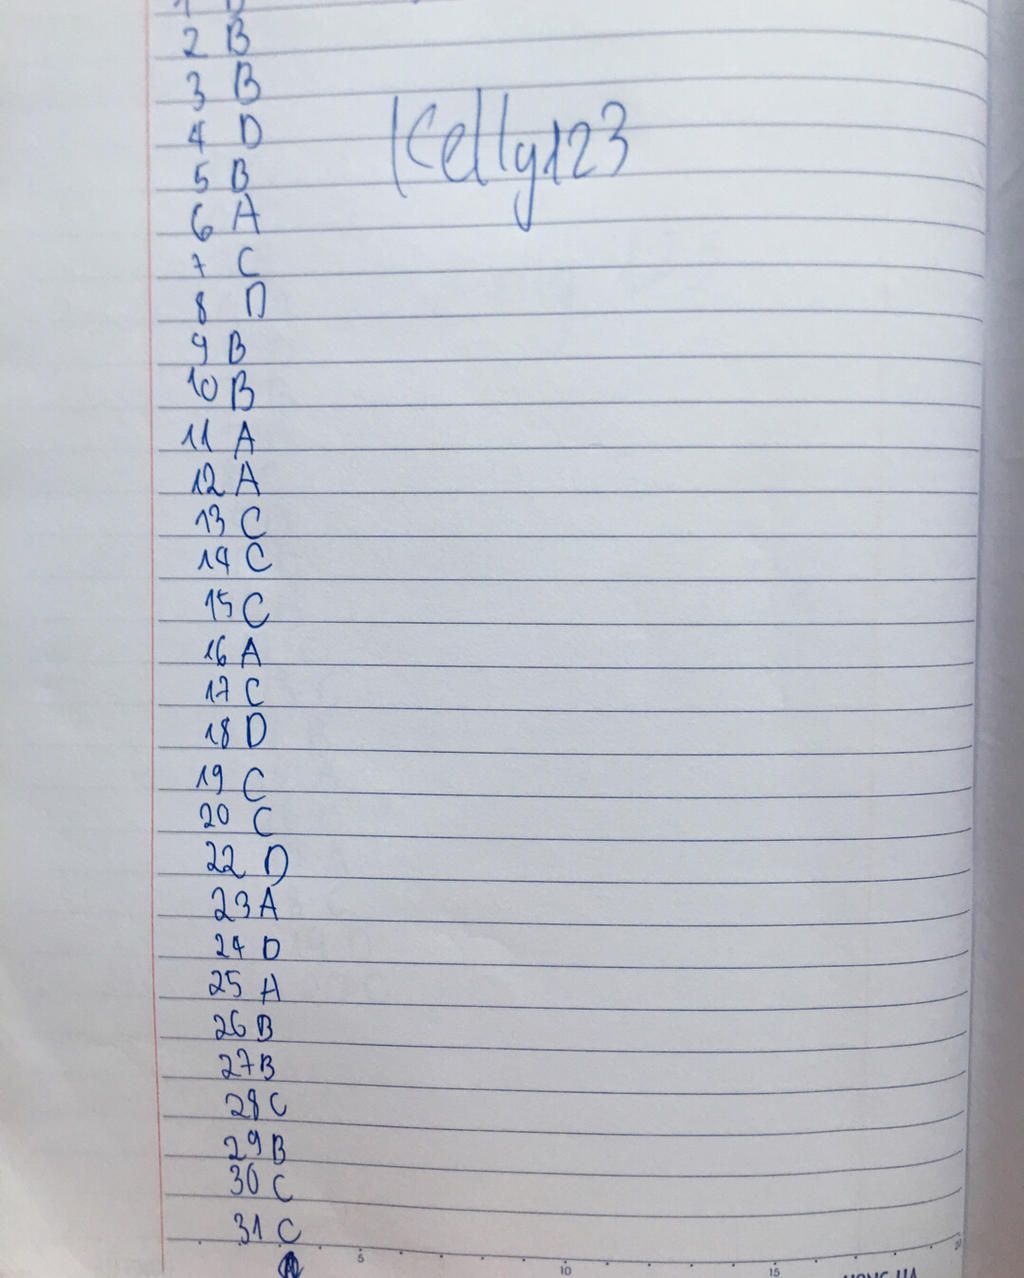 2 B
3 B
4 D
Kelly123
5 B
6 A
7 C
8 D
9 B
10 B
11 A
12 A
13 C
14 C
15 C
16 A
17 C
18 D
19 C
20 C
22 D
23 A
24 D
25 A
26 B
27 B
28 C
29 B
30 C
31 C
5 10 15 20